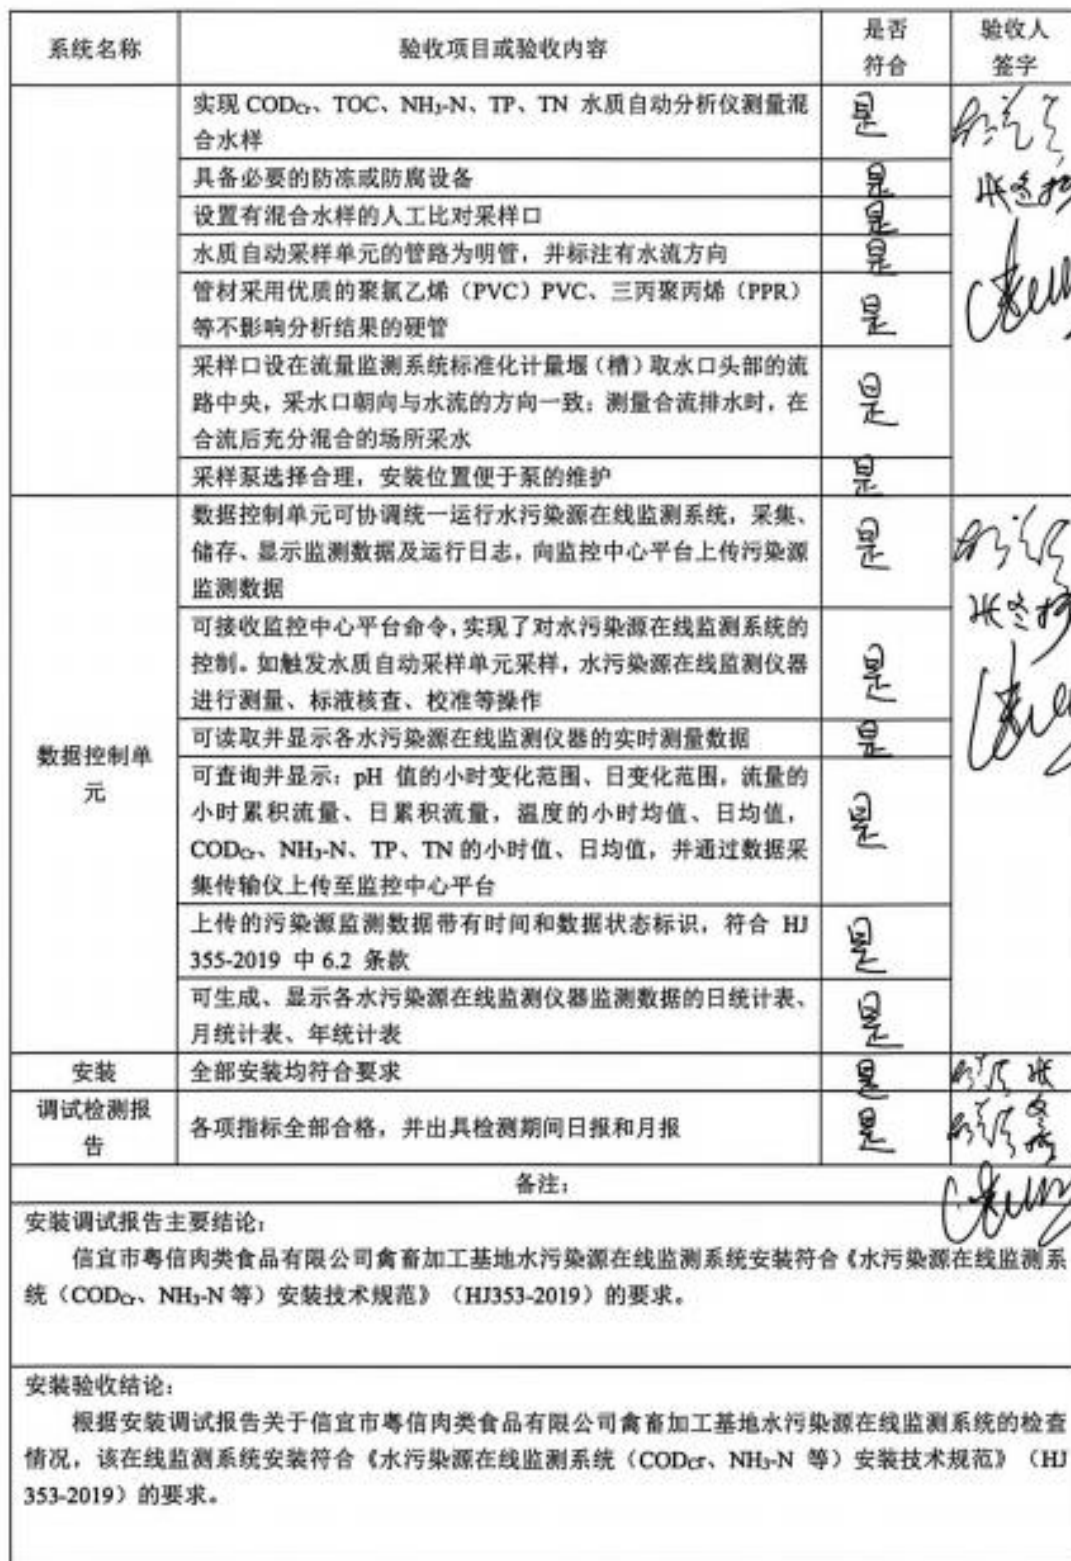 系统名称 验收项目或验收内容 是否 验收人
符合 签字
实现 CODCr、TOC、NH3-N、TP、TN 水质自动分析仪测量混 是
合水样
具备必要的防冻或防腐设备 是
设置有混合水样的人工比对采样口 是
水质自动采样单元的管路为明管，并标注有水流方向 是
管材采用优质的聚氯乙烯（PVC）PVC、三丙聚丙烯（PPR） 是
等不影响分析结果的硬管
采样口设在流量监测系统标准化计量堰（槽）取水口头部的流
路中央，采水口朝向与水流的方向一致；测量合流排水时，在 是
合流后充分混合的场所采水
采样泵选择合理，安装位置便于泵的维护 是
数据控制单元可协调统一运行水污染源在线监测系统，采集、
储存、显示监测数据及运行日志，向监控中心平台上传污染源 是
监测数据
可接收监控中心平台命令，实现了对水污染源在线监测系统的
控制。如触发水质自动采样单元采样，水污染源在线监测仪器 是
进行测量、标液核查、校准等操作
数据控制单 可读取并显示各水污染源在线监测仪器的实时测量数据 是
元 可查询并显示：pH 值的小时变化范围、日变化范围，流量的
小时累积流量、日累积流量，温度的小时均值、日均值， 是
CODCr、NH3-N、TP、TN 的小时值、日均值，并通过数据采
集传输仪上传至监控中心平台
上传的污染源监测数据带有时间和数据状态标识，符合 HJ 是
355-2019 中 6.2 条款
可生成、显示各水污染源在线监测仪器监测数据的日统计表、 是
月统计表、年统计表
安装 全部安装均符合要求 是
调试检测报 各项指标全部合格，并出具检测期间日报和月报 是
告
备注：
安装调试报告主要结论：
信宜市粤信肉类食品有限公司禽畜加工基地水污染源在线监测系统安装符合《水污染源在线监测系
统（CODCr、NH3-N 等）安装技术规范》（HJ353-2019）的要求。
安装验收结论：
根据安装调试报告关于信宜市粤信肉类食品有限公司禽畜加工基地水污染源在线监测系统的检查
情况，该在线监测系统安装符合《水污染源在线监测系统（CODCr、NH3-N 等）安装技术规范》（HJ
353-2019）的要求。